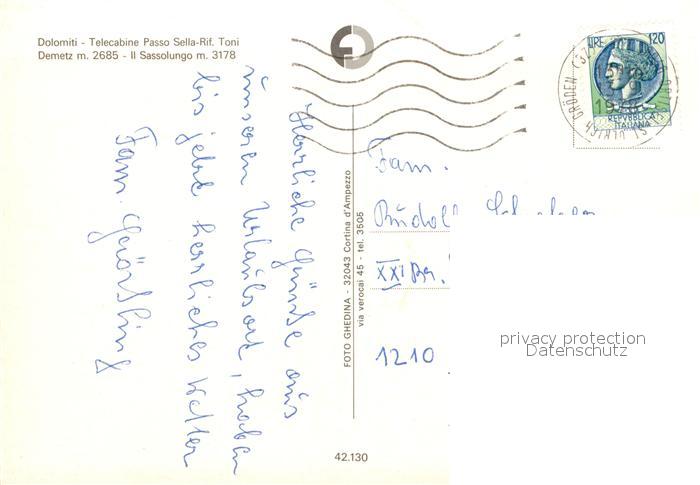 Dolomiti - Telecabine Passo Sella-Rif. Toni
Demetz m. 2685 - Il Sassolungo m. 3178
LIRE 120
REPVBBLICA
ITALIANA
GRÖDEN
ST. ULRICH
Herrliche Grüße aus
unseren Urlaubsort, haben
bis jetzt herrliches Wetter
Fam.
FOTO GHEDINA - 32043 Cortina d'Ampezzo
via verocai 45 - tel. 3505
Fam.
Rudolf
XXI Bez.
1210
privacy protection
Datenschutz
42.130